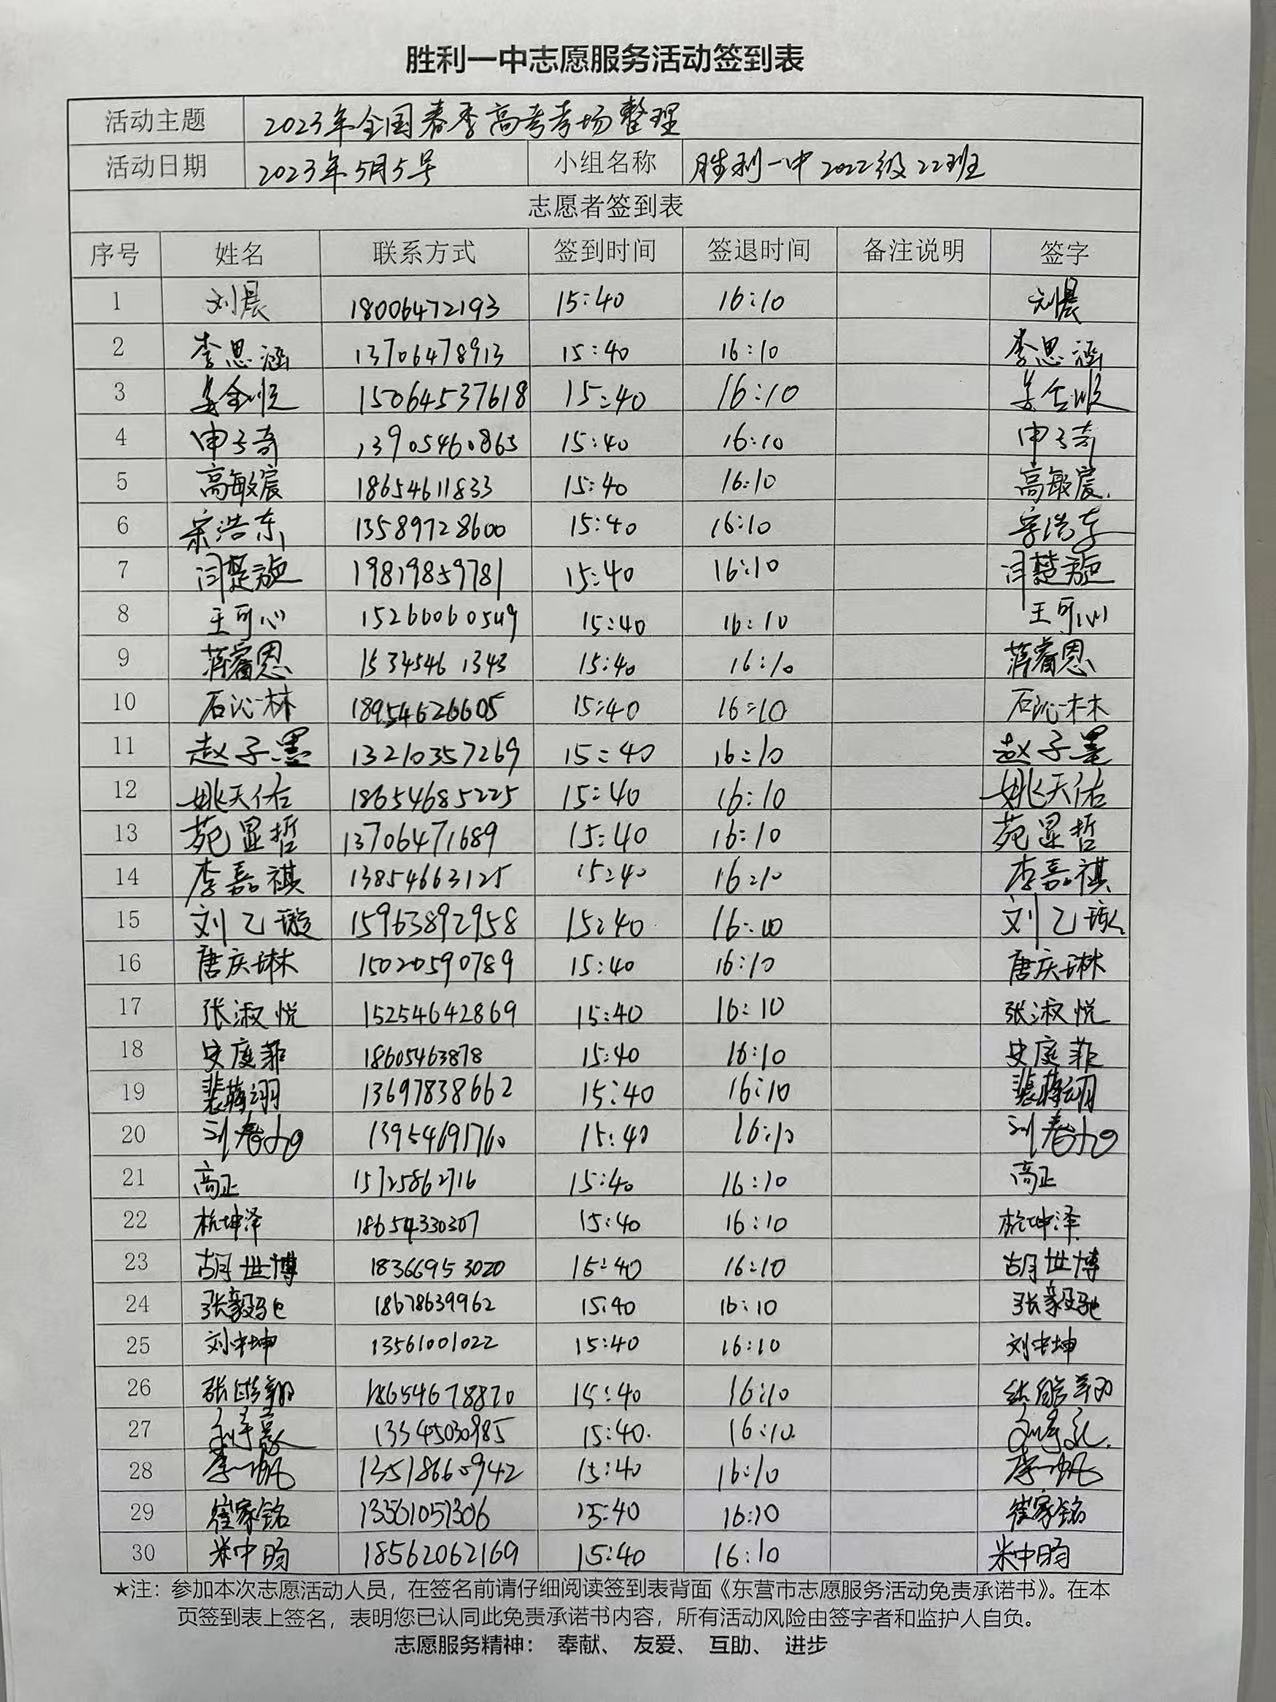 胜利一中志愿服务活动签到表
活动主题 2023年全国春季高考考场整理
活动日期 2023年5月5号 小组名称 胜利一中2022级22班
志愿者签到表
序号 姓名 联系方式 签到时间 签退时间 备注说明 签字
1 刘晨 18006472193 15:40 16:10 刘晨
2 李思涵 13706478913 15:40 16:10 李思涵
3 姜金顺 15064537618 15:40 16:10 姜金顺
4 申子奇 13905460865 15:40 16:10 申子奇
5 高敏宸 18654611833 15:40 16:10 高敏宸
6 宋浩东 13589728600 15:40 16:10 宋浩东
7 闫楚璇 19819859781 15:40 16:10 闫楚璇
8 王可心 15266060549 15:40 16:10 王可心
9 蒋睿恩 15345461343 15:40 16:10 蒋睿恩
10 石沁林 18954626605 15:40 16:10 石沁林
11 赵子墨 13210357269 15:40 16:10 赵子墨
12 姚天佑 18654685225 15:40 16:10 姚天佑
13 苑显哲 13706471689 15:40 16:10 苑显哲
14 李嘉祺 13854663125 15:40 16:10 李嘉祺
15 刘乙璇 15963892958 15:40 16:10 刘乙璇
16 唐庆琳 15020590789 15:40 16:10 唐庆琳
17 张淑悦 15254642869 15:40 16:10 张淑悦
18 安庭菲 18605463878 15:40 16:10 安庭菲
19 裴蒋翊 13697838662 15:40 16:10 裴蒋翊
20 刘春 13954691760 15:40 16:10 刘春
21 高正 15725862716 15:40 16:10 高正
22 杭坤泽 18654330307 15:40 16:10 杭坤泽
23 胡世博 18366953020 15:40 16:10 胡世博
24 张毅驰 18678639962 15:40 16:10 张毅驰
25 刘中坤 13561001022 15:40 16:10 刘中坤
26 张皓翔 18654678870 15:40 16:10
27 13345030985 15:40 16:10
28 李一帆 13518660942 15:40 16:10 李一帆
29 崔家铭 13561051306 15:40 16:10 崔家铭
30 米中昀 18562062169 15:40 16:10 米中昀
★注：参加本次志愿活动人员，在签名前请仔细阅读签到表背面《东营市志愿服务活动免责承诺书》。在本
页签到表上签名，表明您已认同此免责承诺书内容，所有活动风险由签字者和监护人自负。
志愿服务精神： 奉献、 友爱、 互助、 进步